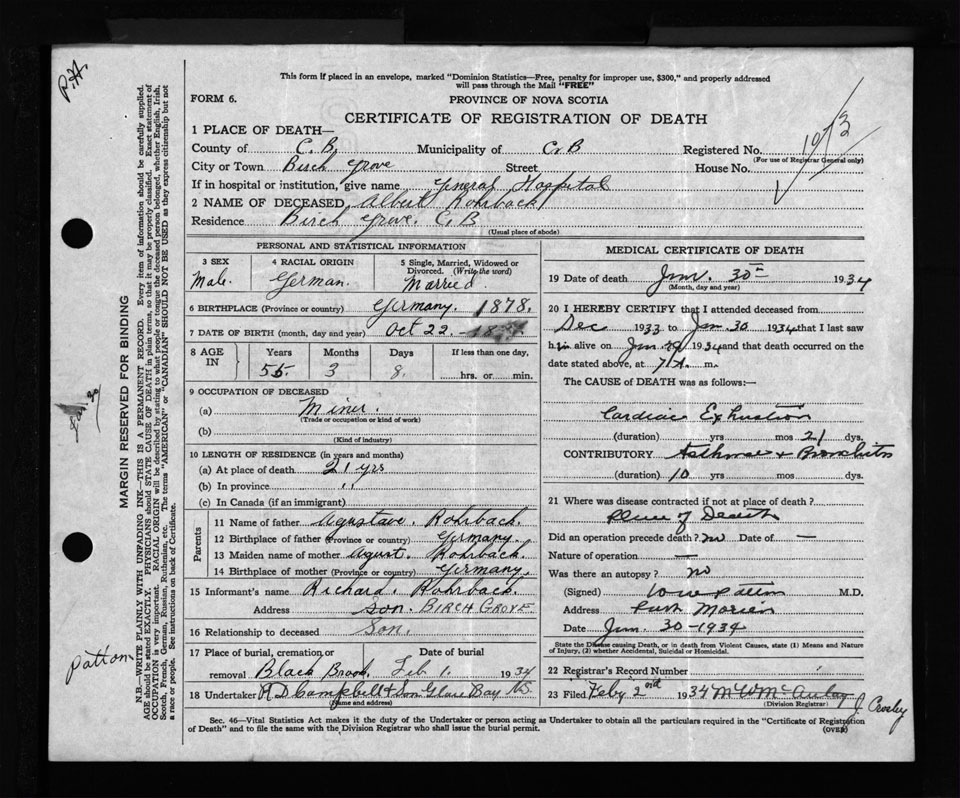 P.H.
This form if placed in an envelope, marked "Dominion Statistics—Free, penalty for improper use, $300," and properly addressed
will pass through the Mail "FREE"
FORM 6.
PROVINCE OF NOVA SCOTIA
CERTIFICATE OF REGISTRATION OF DEATH
1 PLACE OF DEATH—
County of C.B. Municipality of C.B Registered No.
(For use of Registrar General only)
City or Town Birch Grove Street House No.
If in hospital or institution, give name General Hospital
2 NAME OF DECEASED Albert Rohrback
Residence Birch Grove. C.B
(Usual place of abode)
PERSONAL AND STATISTICAL INFORMATION
3 SEX 4 RACIAL ORIGIN 5 Single, Married, Widowed or Divorced. (Write the word)
Male. German. Married
6 BIRTHPLACE (Province or country) Germany. 1878.
7 DATE OF BIRTH (month, day and year) Oct 22.
8 AGE IN Years Months Days If less than one day,
55 3 8. hrs. or min.
9 OCCUPATION OF DECEASED
(a) Miner.
(Trade or occupation or kind of work)
(b)
(Kind of industry)
10 LENGTH OF RESIDENCE (in years and months)
(a) At place of death 21 yrs
(b) In province ,,
(c) In Canada (if an immigrant)
Parents
11 Name of father Agustave. Rohrback.
12 Birthplace of father (Province or country) Germany.
13 Maiden name of mother Agust. Rohrback.
14 Birthplace of mother (Province or country) Germany.
15 Informant's name Richard. Rohrback.
Address son. BIRCH GROVE
16 Relationship to deceased Son.
17 Place of burial, cremation, or removal Date of burial
Black Brook. Feb. 1. 1934
18 Undertaker A D Campbell & Son Glace Bay N.S.
(Name and address)
MEDICAL CERTIFICATE OF DEATH
19 Date of death Jan. 30 1934
(Month, day and year)
20 I HEREBY CERTIFY that I attended deceased from
Dec 1933 to Jan. 30 1934 that I last saw
him alive on Jan 29 1934 and that death occurred on the
date stated above, at 7 A. m.
The CAUSE OF DEATH was as follows:
Cardiac Exhustion
(duration) yrs mos 21 dys.
CONTRIBUTORY Asthma & Bronchitis
(duration) 10 yrs mos dys.
21 Where was disease contracted if not at place of death?
place of Death
Did an operation precede death? no Date of —
Nature of operation —
Was there an autopsy? no
(Signed) Patton M.D.
Address Port Morien
Date Jan. 30-1934
State the Disease causing Death, or in death from Violent Causes, state (1) Means and Nature of Injury, (2) whether Accidental, Suicidal or Homicidal.
22 Registrar's Record Number
23 Filed Feby 2nd 1934 McAulay
(Division Registrar)
J. Crosby
Sec. 46—Vital Statistics Act makes it the duty of the Undertaker or person acting as Undertaker to obtain all the particulars required in the "Certificate of Registration
of Death" and to file the same with the Division Registrar who shall issue the burial permit.
(OVER)
MARGIN RESERVED FOR BINDING
N.B.—WRITE PLAINLY WITH UNFADING INK—THIS IS A PERMANENT RECORD. Every item of information should be carefully supplied.
AGE should be stated EXACTLY. PHYSICIANS should STATE CAUSE OF DEATH in plain terms, so that it may be properly classified. Exact statement of
OCCUPATION is very important. RACIAL ORIGIN will be described by stating to what people or tongue the deceased person belonged, whether English, Irish,
Scotch, French, German, Russian, Ruthenian, etc. The terms "AMERICAN" or "CANADIAN" SHOULD NOT BE USED as they express citizenship but not
a race or people. See instructions on back of Certificate.
Patton